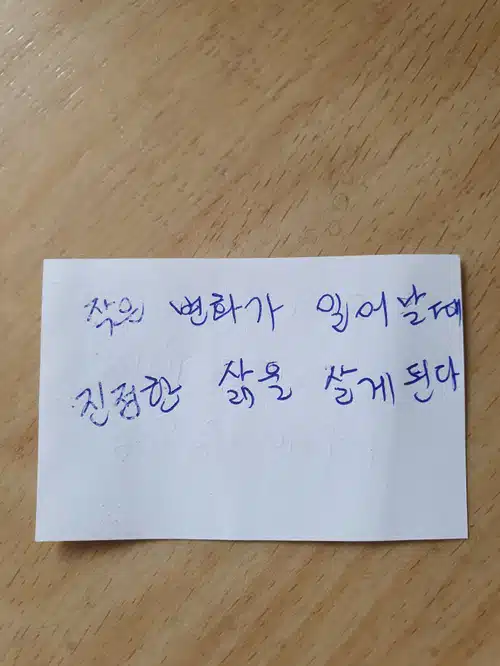 작은 변화가 일어날때
진정한 삶을 살게된다